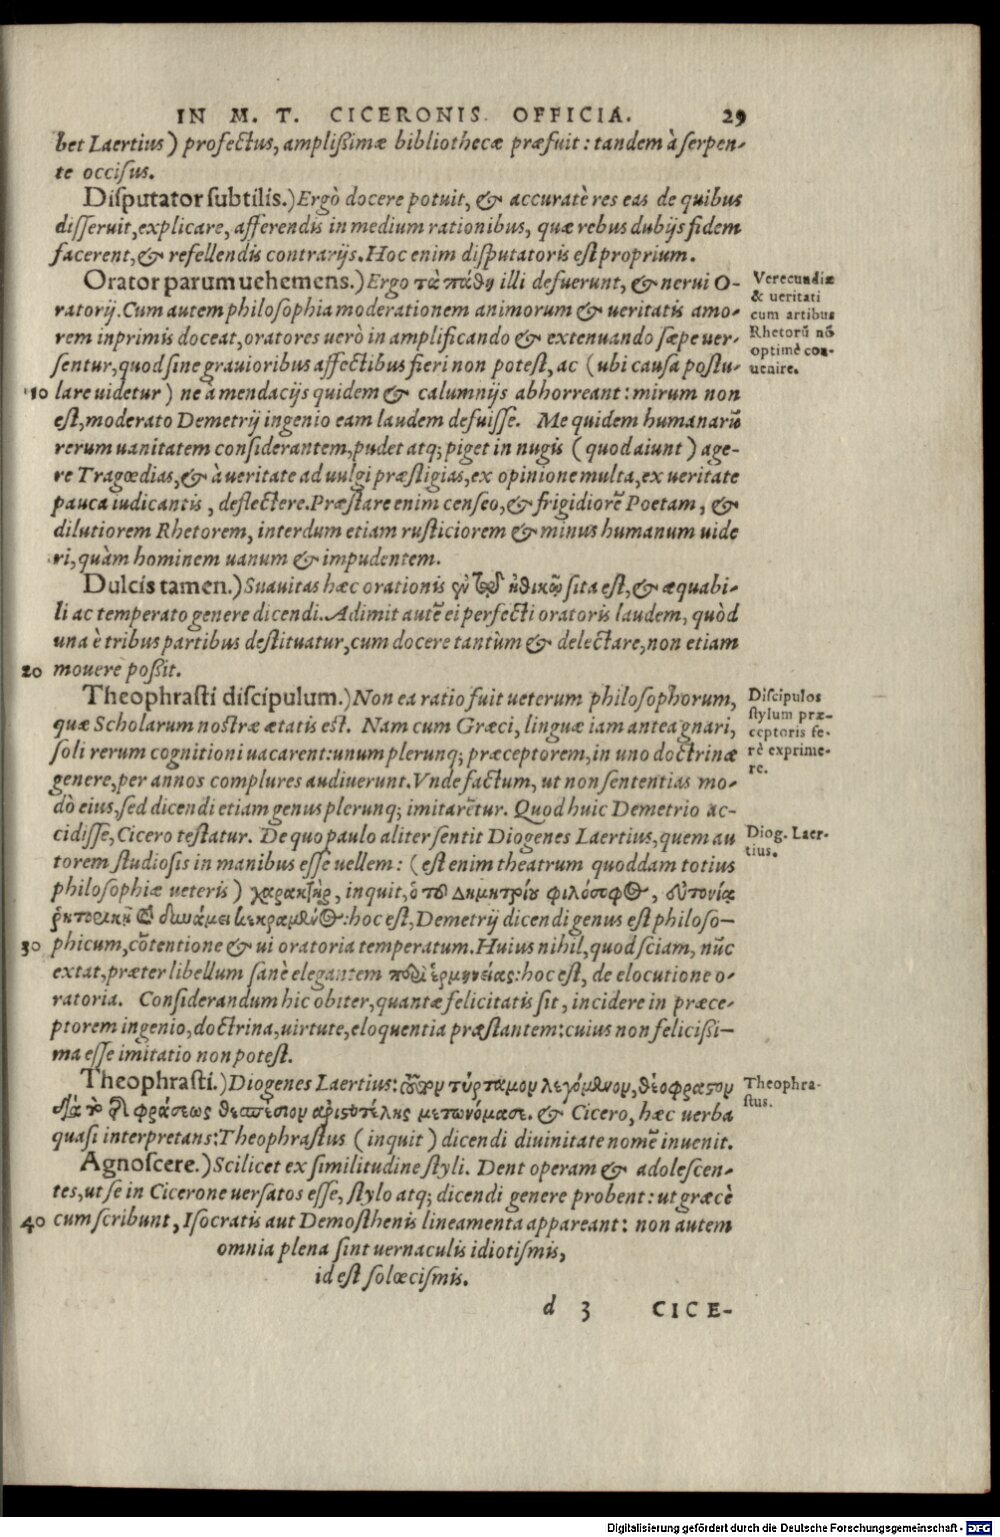 IN M. T. CICERONIS OFFICIA. 29
bet Laertius) profectus, amplißimæ bibliothecæ præfuit: tandem à serpen-
te occisus.
Disputator subtilis.) Ergò docere potuit, & accuratè res eas de quibus
disseruit, explicare, afferendis in medium rationibus, quæ rebus dubijs fidem
facerent, & refellendis contrarijs. Hoc enim disputatoris est proprium.
Orator parum uehemens.) Ergo τὰ πάθη illi defuerunt, & nerui O-
ratorij. Cum autem philosophia moderationem animorum & ueritatis amo-
rem inprimis doceat, oratores uerò in amplificando & extenuando sæpe uer-
sentur, quod sine grauioribus affectibus fieri non potest, ac (ubi causa postu-
10 lare uidetur) ne à mendacijs quidem & calumnijs abhorreant: mirum non
est, moderato Demetrij ingenio eam laudem defuisse. Me quidem humanarũ
rerum uanitatem considerantem, pudet atq; piget in nugis (quod aiunt) age-
re Tragœdias, & à ueritate ad uulgi præstigias, ex opinione multa, ex ueritate
pauca iudicantis, deflectere. Præstare enim censeo, & frigidiorẽ Poetam, &
dilutiorem Rhetorem, interdum etiam rusticiorem & minus humanum uide
ri, quàm hominem uanum & impudentem.
Dulcis tamen.) Suauitas hæc orationis ἐν τῷ ἠθικῷ sita est, & æquabi-
li ac temperato genere dicendi. Adimit autẽ ei perfecti oratoris laudem, quòd
una è tribus partibus destituatur, cum docere tantùm & delectare, non etiam
20 mouere poßit.
Theophrasti discipulum.) Non ea ratio fuit ueterum philosophorum,
quæ Scholarum nostræ ætatis est. Nam cum Græci, linguæ iam antea gnari,
soli rerum cognitioni uacarent: unum plerunq; præceptorem, in uno doctrinæ
genere, per annos complures audiuerunt. Vnde factum, ut non sententias mo-
dò eius, sed dicendi etiam genus plerunq; imitarẽtur. Quod huic Demetrio ac-
cidisse, Cicero testatur. De quo paulo aliter sentit Diogenes Laertius, quem au
torem studiosis in manibus esse uellem: (est enim theatrum quoddam totius
philosophiæ ueteris) χαρακτὴρ, inquit, ὁ τοῦ Δημητρίου φιλόσοφος, εὐτονίᾳ
ῥητορικῇ καὶ δυνάμει κεκραμένος: hoc est, Demetrij dicendi genus est philoso-
30 phicum, cõtentione & ui oratoria temperatum. Huius nihil, quod sciam, nũc
extat, præter libellum sanè elegantem περὶ ἑρμηνείας: hoc est, de elocutione o-
ratoria. Considerandum hic obiter, quantæ felicitatis sit, incidere in præce-
ptorem ingenio, doctrina, uirtute, eloquentia præstantem: cuius non felicißi-
ma esse imitatio non potest.
Theophrasti.) Diogenes Laertius: οὗτον τύρταμον λεγόμενον, θεόφραστον
διὰ τὸ τῆς φράσεως θεσπέσιον ἀριστοτέλης μετωνόμασε. & Cicero, hæc uerba
quasi interpretans: Theophrastus (inquit) dicendi diuinitate nomẽ inuenit.
Agnoscere.) Scilicet ex similitudine styli. Dent operam & adolescen-
tes, ut se in Cicerone uersatos esse, stylo atq; dicendi genere probent: ut græcè
40 cum scribunt, Isocratis aut Demosthenis lineamenta appareant: non autem
omnia plena sint uernaculis idiotismis,
id est solœcismis.
d 3 CICE-
Verecundiæ
& ueritati
cum artibus
Rhetorũ nõ
optimè con-
uenire.
Discipulos
stylum præ-
ceptoris fe-
rè exprime-
re.
Diog. Laer-
tius.
Theophra-
stus.
Digitalisierung gefördert durch die Deutsche Forschungsgemeinschaft - DFG